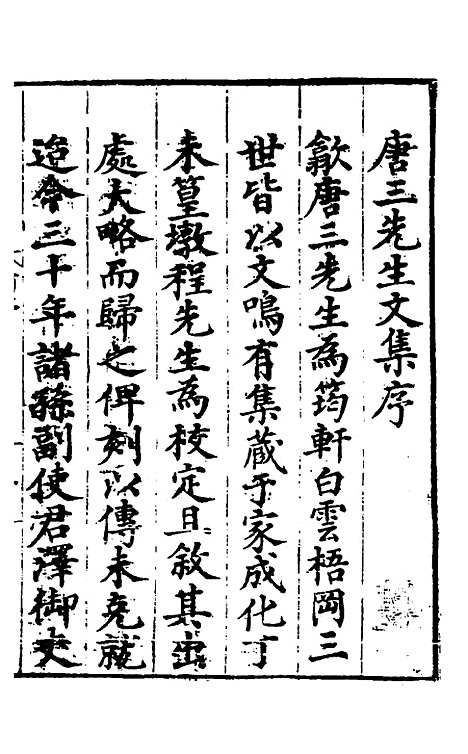 唐三先生文集序
歙唐三先生為筠軒白雲梧岡三
世皆以文鳴有集蔵于家成化丁
未篁墩程先生為校定且敘其出
處大略而歸之俾刻以傳未克就
迨今三十年諸孫副使君澤御史